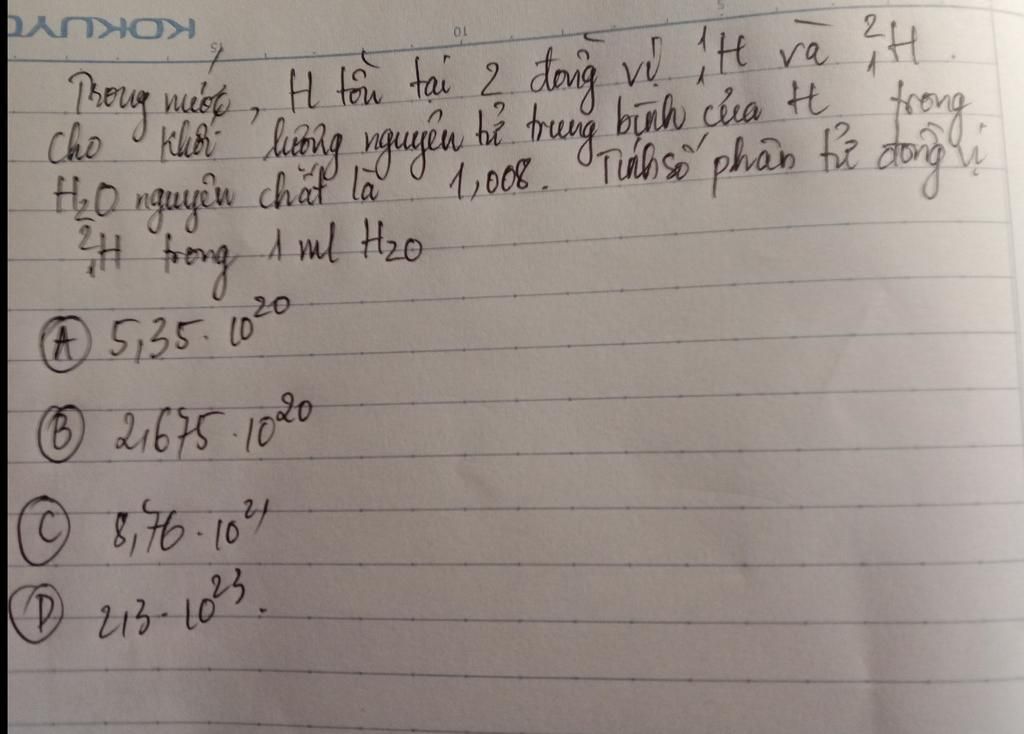 KOKUYO
10
5
Trong nước, H tồn tại 2 đồng vị ¹₁H và ²₁H.
Cho khối lượng nguyên tử trung bình của H trong
H₂O nguyên chất là 1,008. Tính số phân tử đồng vị
²₁H trong 1 ml H₂O
Ⓐ 5,35 · 10²⁰
Ⓑ 2,675 · 10²⁰
Ⓒ 8,76 · 10²¹
Ⓓ 2,3 · 10²³.